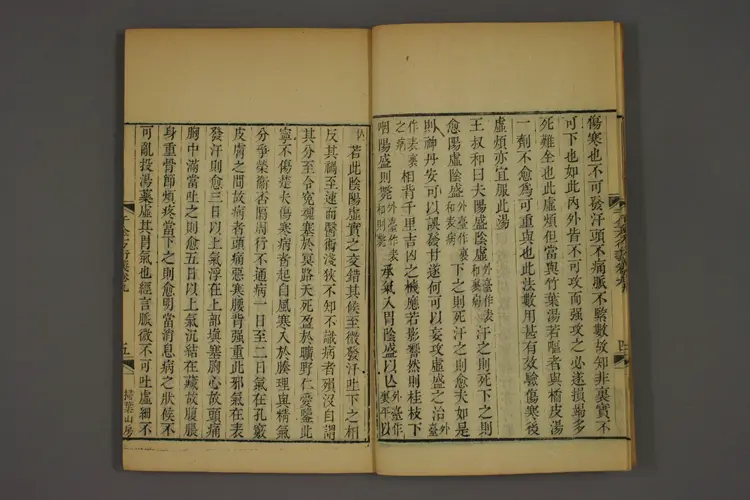 傷寒也不可發汗頭不痛脈不緊數故知非裏實不
可下也如此內外皆不可攻而强攻之必遂損竭多
死難全也此虛煩但當與竹葉湯若嘔者與橘皮湯
一劑不愈爲可重與也此法數用甚有效驗傷寒後
虛煩亦宜服此湯
王叔和曰夫陽盛陰虛外臺作表和裏病汗之則死下之則
愈陽虛陰盛外臺作裏和表病下之則死汗之則愈夫如是
則神丹安可以誤發甘遂何可以妄攻虛盛之治外臺
作表裏之病相背千里吉凶之機應若影響然則桂枝下
咽陽盛則斃外臺作表和則斃承氣入胃陰盛以亡外臺作裏平以
若此陰陽虛實之交錯其候至微發汗吐下之相
反其禍至速而醫術淺狹不知不識病者殞沒自謂
其分至令冤魂塞於冥路夭死盈於曠野仁愛鑒此
寧不傷楚夫傷寒病者起自風寒入於腠理與精氣
分爭榮衛否隔周行不通病一日至二日氣在孔竅
皮膚之間故病者頭痛惡寒腰背强重此邪氣在表
發汗則愈三日以上氣浮在上部塡塞胸心故頭痛
胸中滿當吐之則愈五日以上氣沉結在藏故腹脹
身重骨節煩疼當下之則愈明當消息病之狀候不
可亂投湯藥虛其胃氣也經言脈微不可吐虛細不
五
掃葉山房